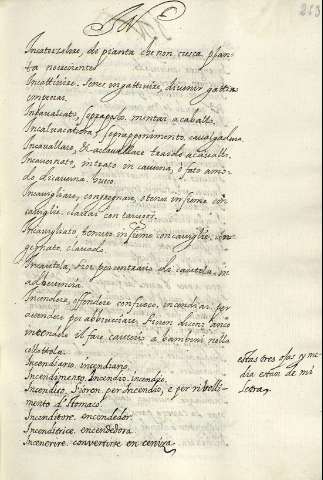 IN
213
Incatorzolire, de pianta che non cresca plan-
ta
Incattivire. Senec ingattivire, divenir gattiva
Incavalcato, soprapposto. montar a cavallo.
Incavalcatura, soprapponimento. cavalgadura.
Incavallare, accavallare
Incavernato, intrato in caverna, o fato amo-
do di caverna.
Incavigliare, congregnare, o tenir insieme con
caviglie. clavar con tarugos.
Incavigliato, tenuto insieme con caviglie, con-
gegnato. clavado.
Incautela, Fior. per contrario di cautela. in
advertencia.
Incendere, offendere con fuoco, incendiar. per
accendere per abbrucciare. Fioren. dicenz anco
incendere il fare cauterio a bambini nella
collottola.
Incendiario, incendiario.
Incendimento, Incendio. incendio.
Incendito, Fioren. per Incendio, e per ribolli-
mento d'stomaco.
Incenditore. encendedor.
Incenditrice. encendedora
Incenerire. convertirse en ceniza.
estas tres ojas y me-
dia estan de mi
letra.